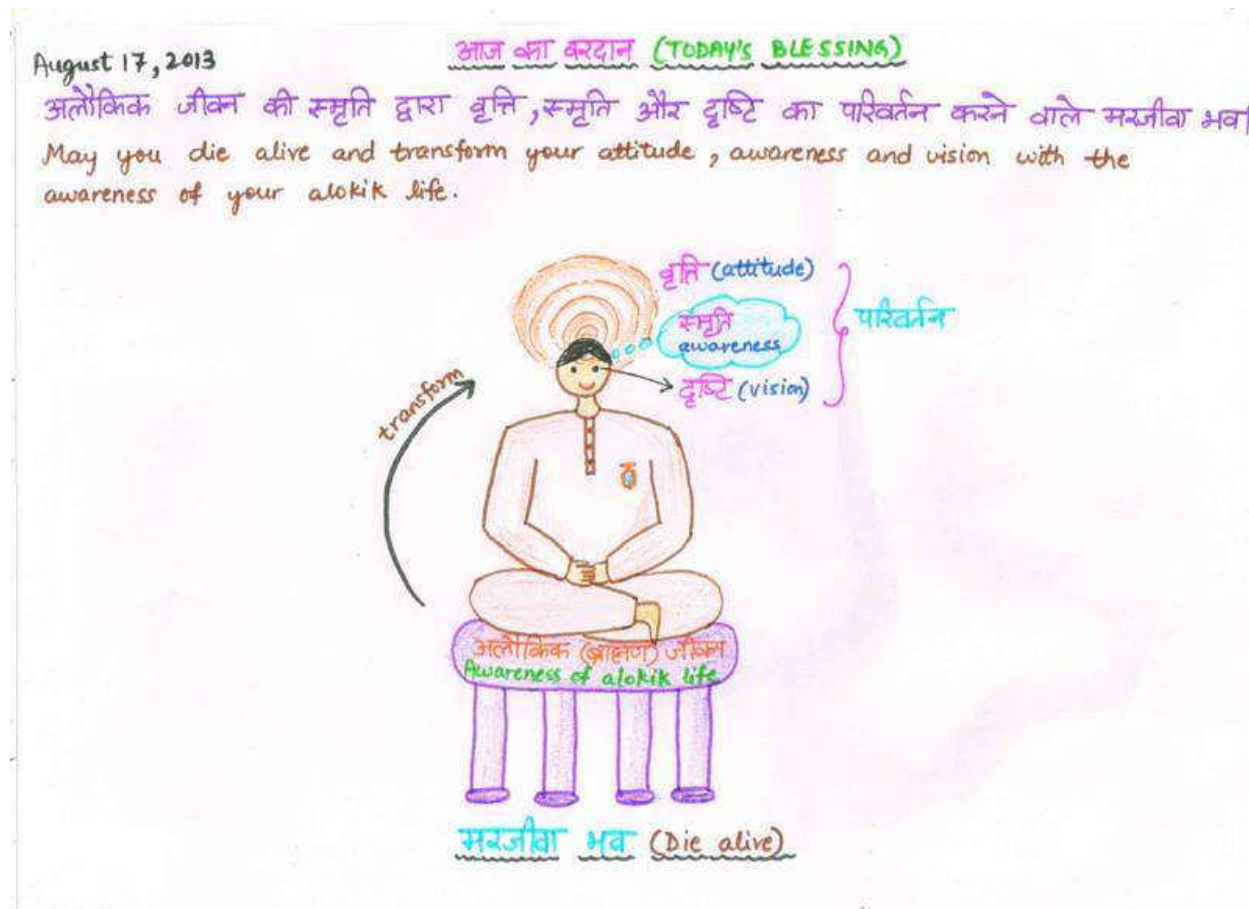 August 17, 2013
आज का वरदान (TODAY'S BLESSING)
अलौकिक जीवन की स्मृति द्वारा वृत्ति, स्मृति और दृष्टि का परिवर्तन करने वाले मरजीवा भव।
May you die alive and transform your attitude, awareness and vision with the
awareness of your alokik life.
वृत्ति (attitude)
स्मृति
awareness
दृष्टि (vision)
परिवर्तन
transform
अलौकिक (ब्राह्मण) जीवन
Awareness of alokik life
मरजीवा भव (Die alive)